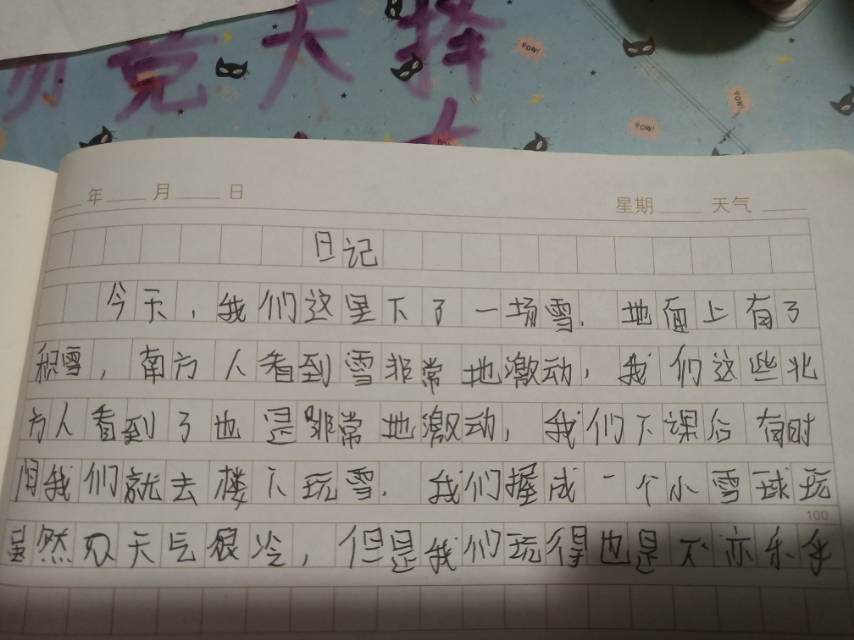 竞天择
POW!
POW!
POW!
年 月 日 星期 天气
日记
今天,我们这里下了一场雪.地面上有了
积雪,南方人看到雪非常地激动,我们这些北
方人看到了也是非常地激动,我们下课后有时
间我们就去楼下玩雪.我们握成一个小雪球玩
100
虽然天气很冷,但是我们玩得也是不亦乐乎